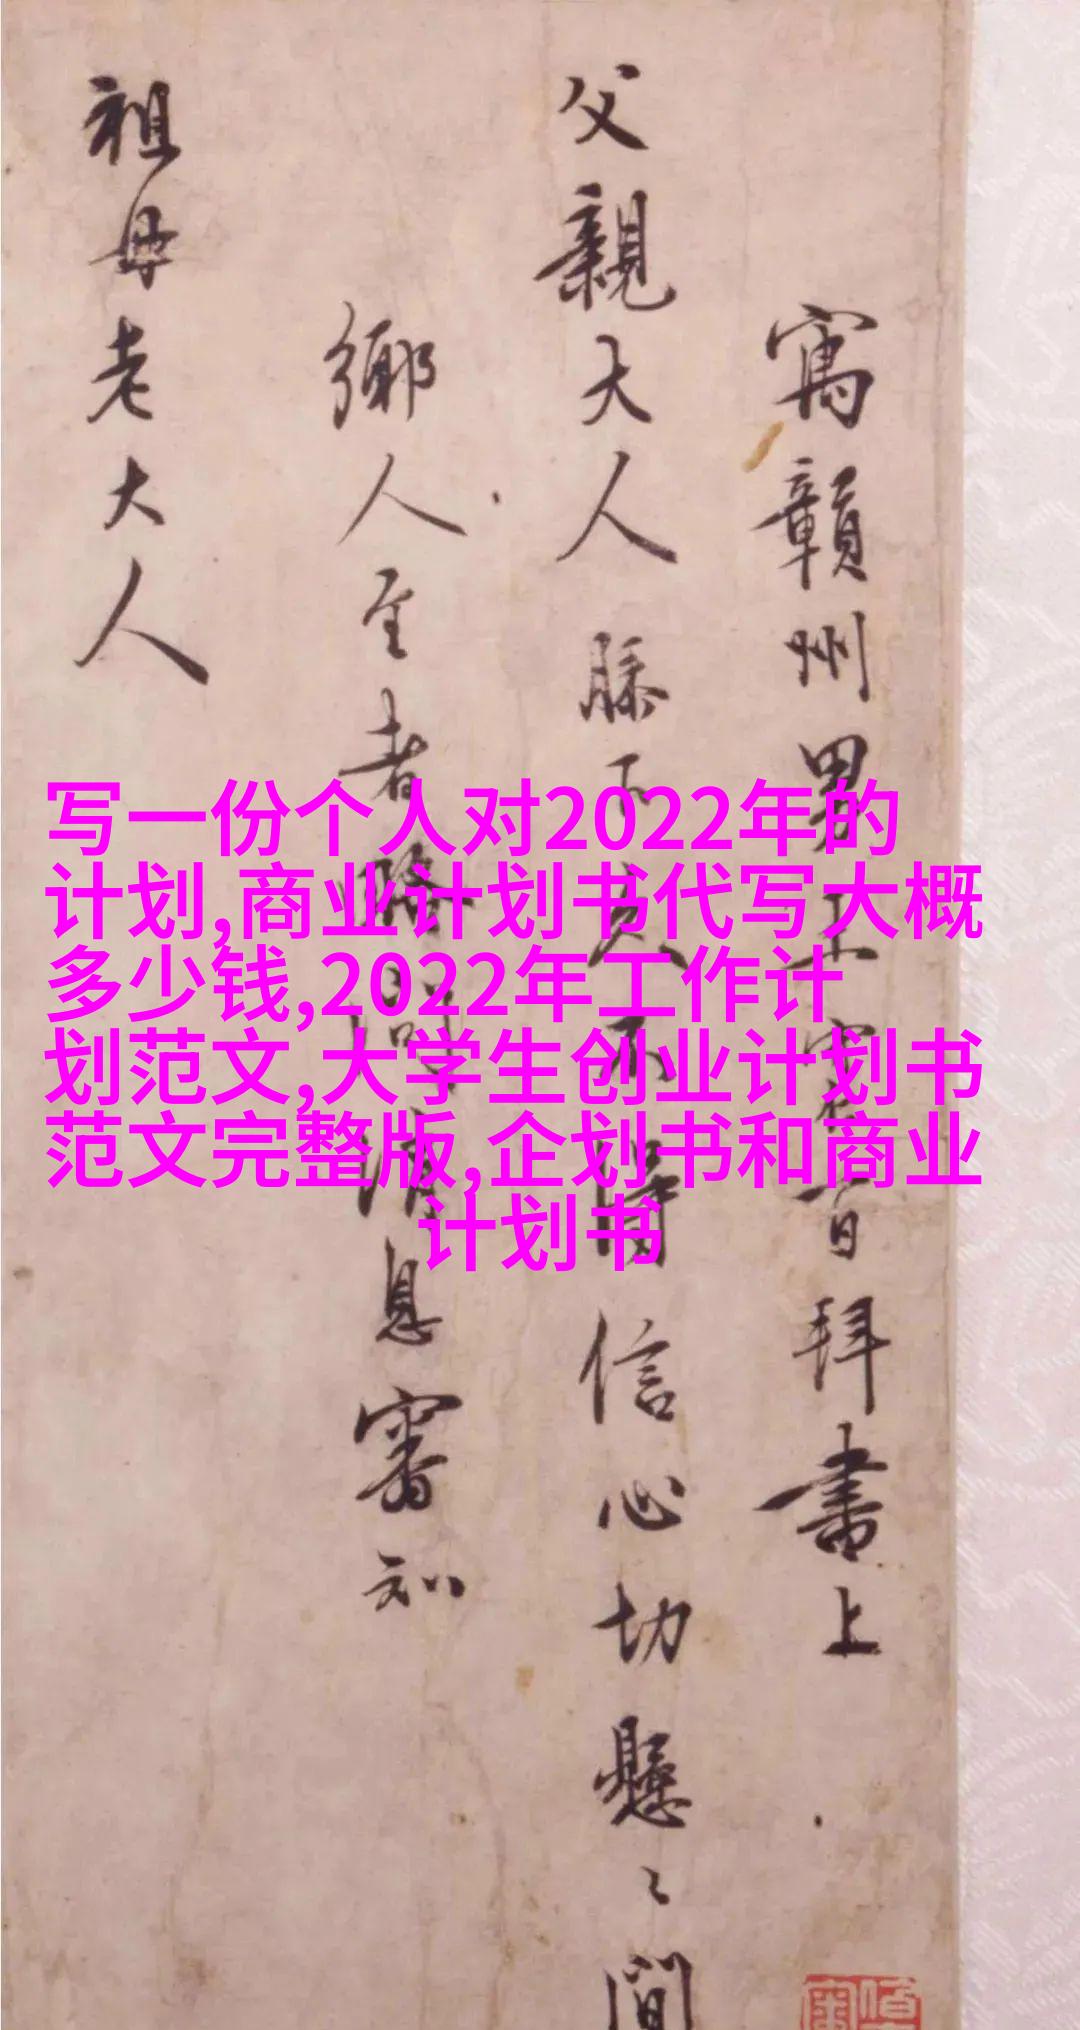 寓贑州男王守仁百拜書上
父親大人膝下久不得信心切懸〻間
鄉人至者略問消息審知
祖母老大人
写一份个人对2022年的
计划,商业计划书代写大概
多少钱,2022年工作计
划范文,大学生创业计划书
范文完整版,企划书和商业
计划书